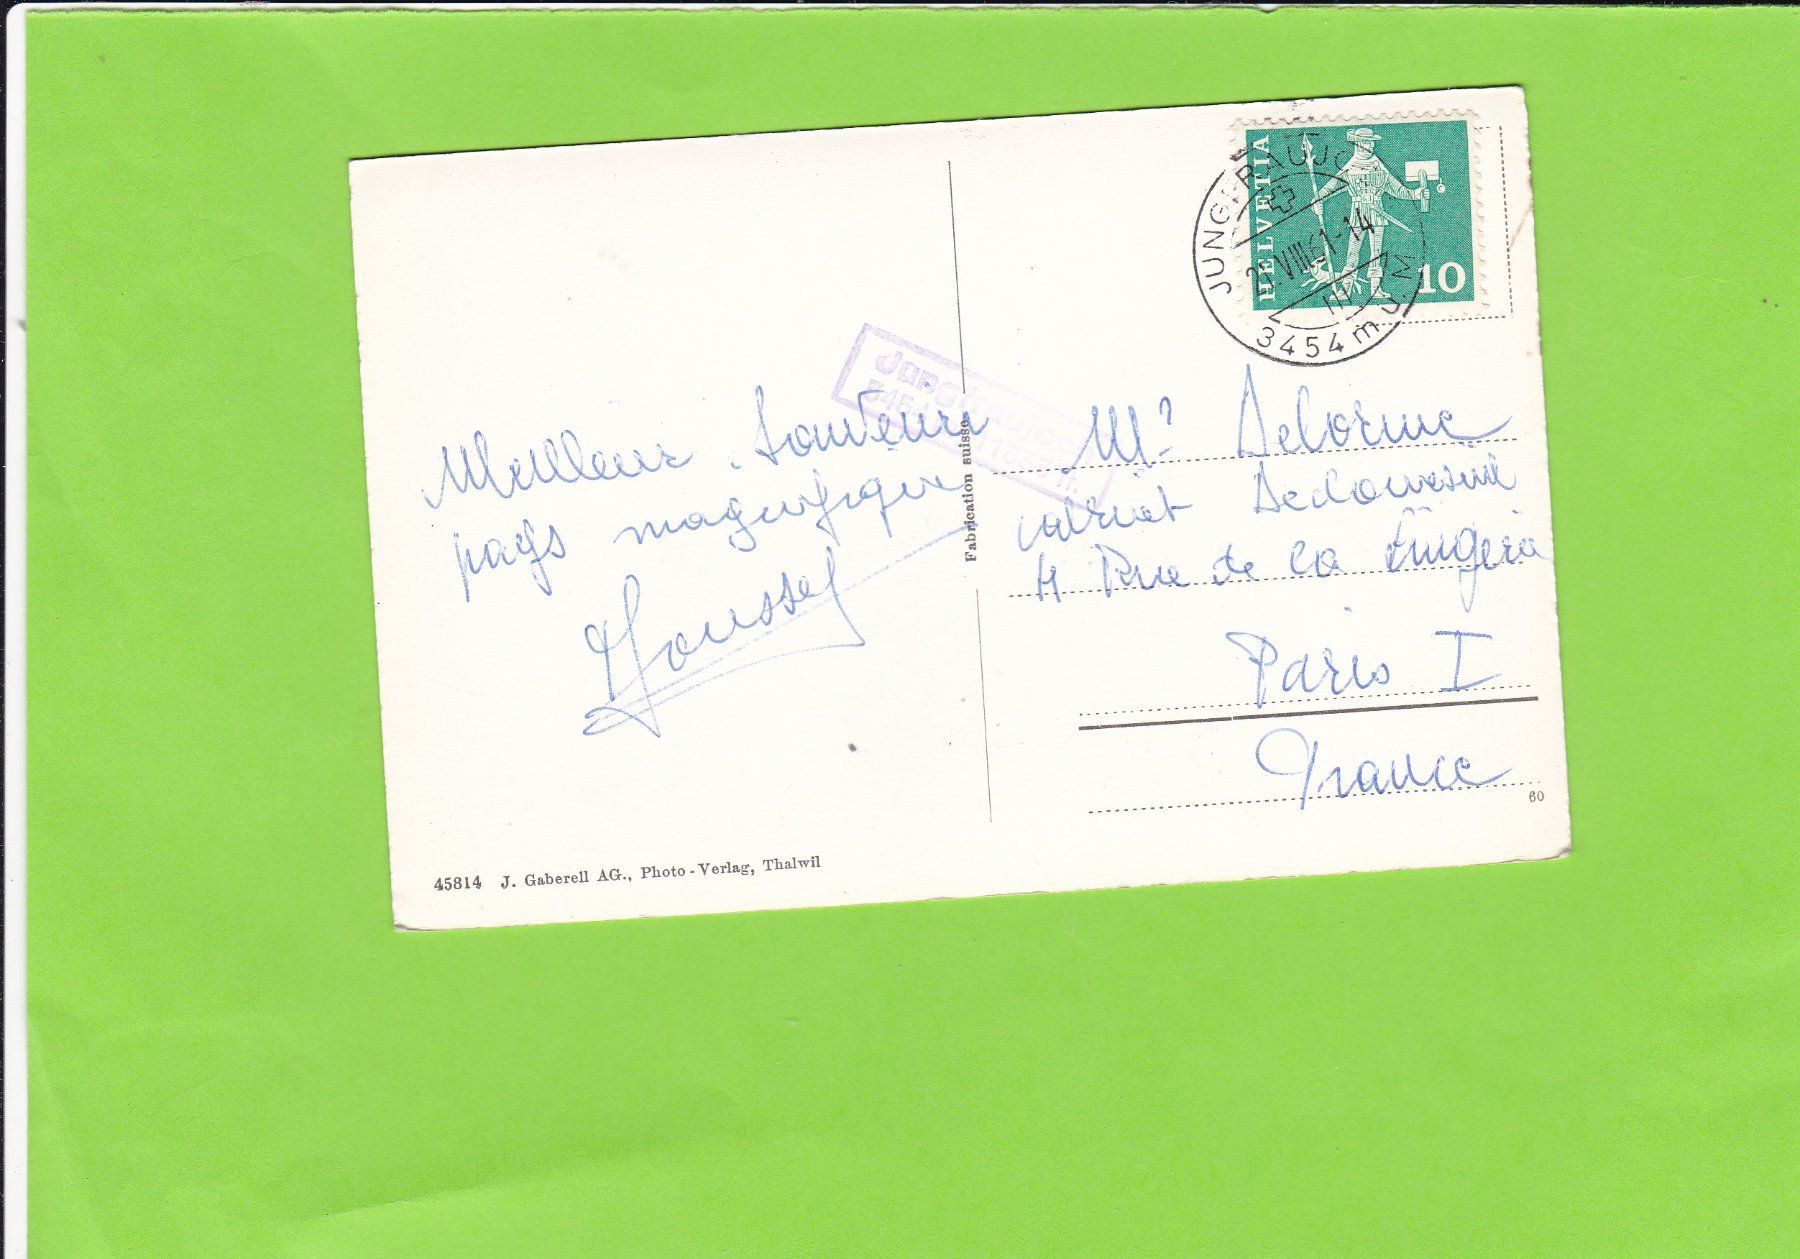 HELVETIA
10
JUNGFRAUJOCH
2 VIII 61-14
3454 m ü.M
Jungfraujoch
Meilleur Souvenir
pays magnifique
Youssef
Fabrication suisse
Mr Delorme
4 Rue de la Lingerie
Paris I
France
60
45814 J. Gaberell AG., Photo-Verlag, Thalwil